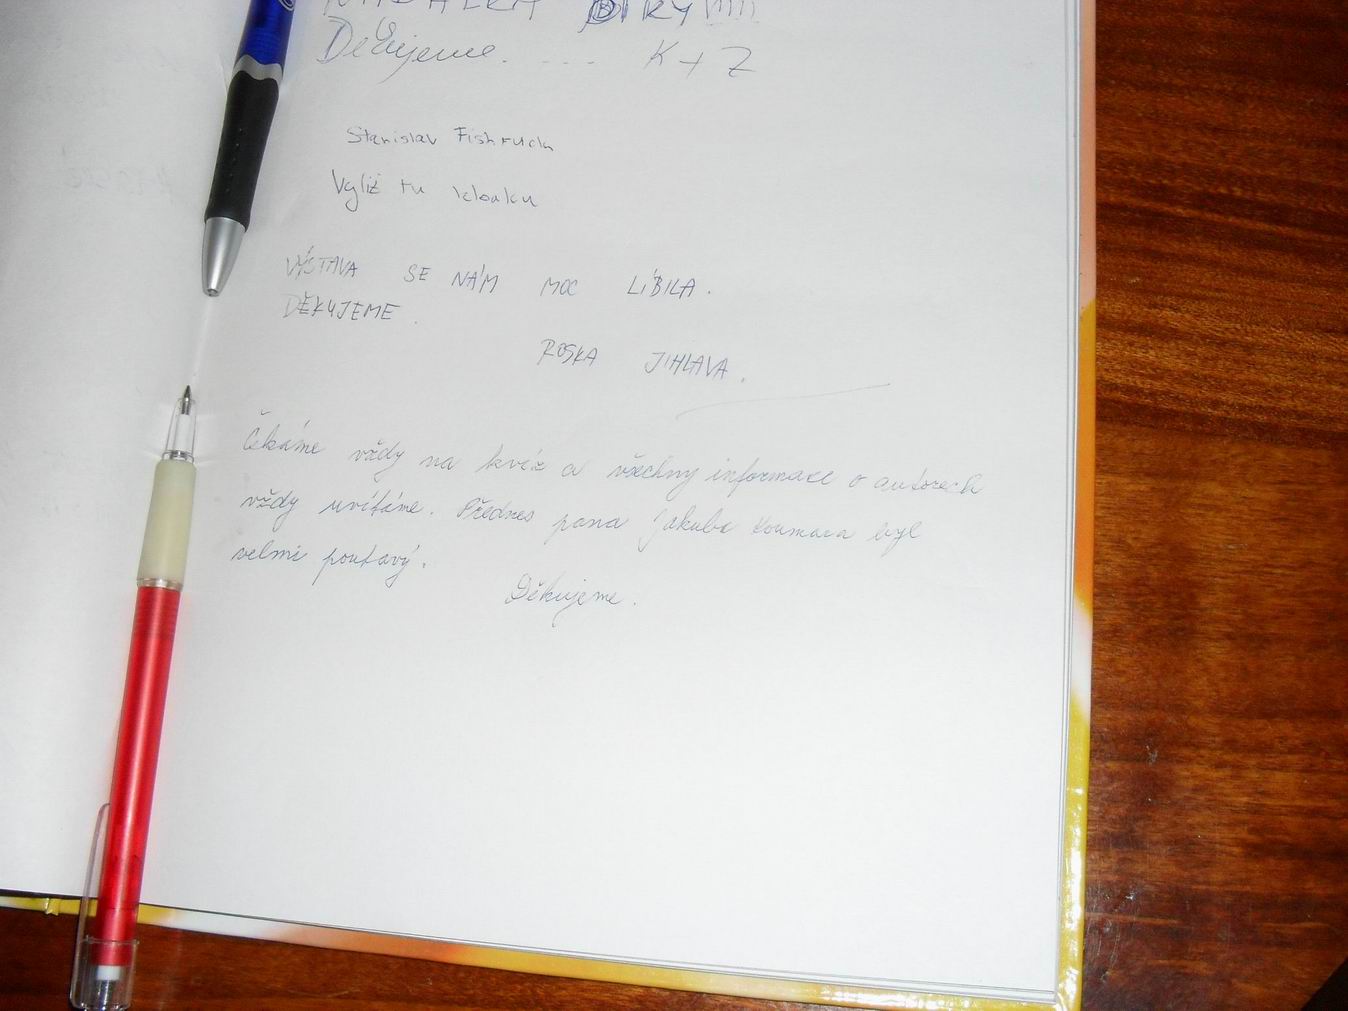 Děkujeme. ... K+Z
Stanislav Fishruch
Vyliž tu kloaku
VÝSTAVA SE NÁM MOC LÍBILA.
DĚKUJEME.
ROSKA JIHLAVA.
Čekáme vždy na kvíz a všechny informace o autorech
vždy uvítáme. Přednes pana Jakuba Koumara byl
velmi poutavý.
Děkujeme.